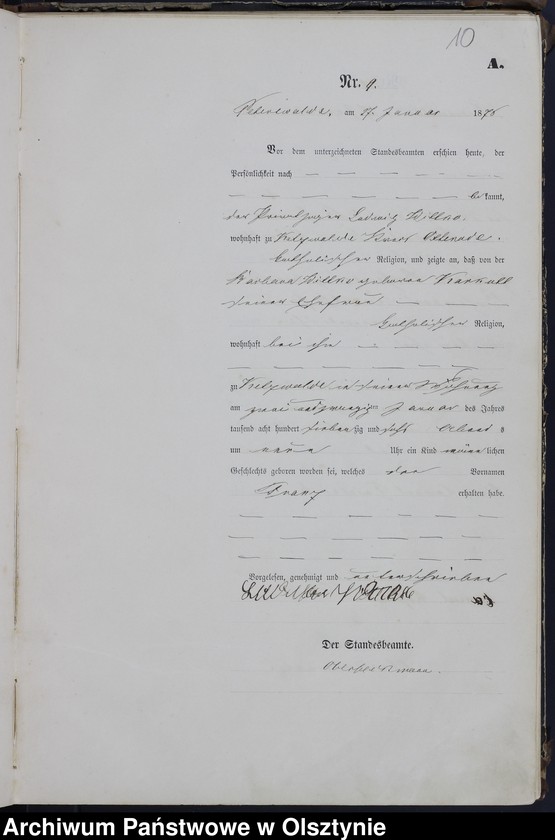 10
A.
Nr. 9.
Peterswalde, am 27. Januar 1876
Vor dem unterzeichneten Standesbeamten erschien heute, der
Persönlichkeit nach
bekannt,
der Ludwig
wohnhaft zu Kreis Osterode.
katholischer Religion, und zeigte an, daß von der
Barbara geborene
seiner Ehefrau
katholischer Religion,
wohnhaft bei ihm
zu in seiner Wohnung
am zwei und zwanzigsten Januar des Jahres
tausend acht hundert siebenzig und sechs Abends
um neun Uhr ein Kind männlichen
Geschlechts geboren worden sei, welches den Vornamen
Franz erhalten habe.
Vorgelesen, genehmigt und unterschrieben
Der Standesbeamte.
Archiwum Państwowe w Olsztynie